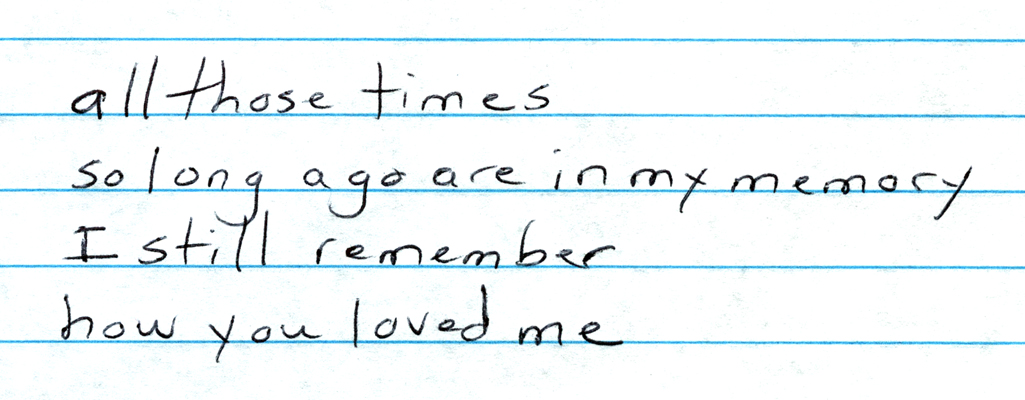 all those times
so long ago are in my memory
I still remember
how you loved me